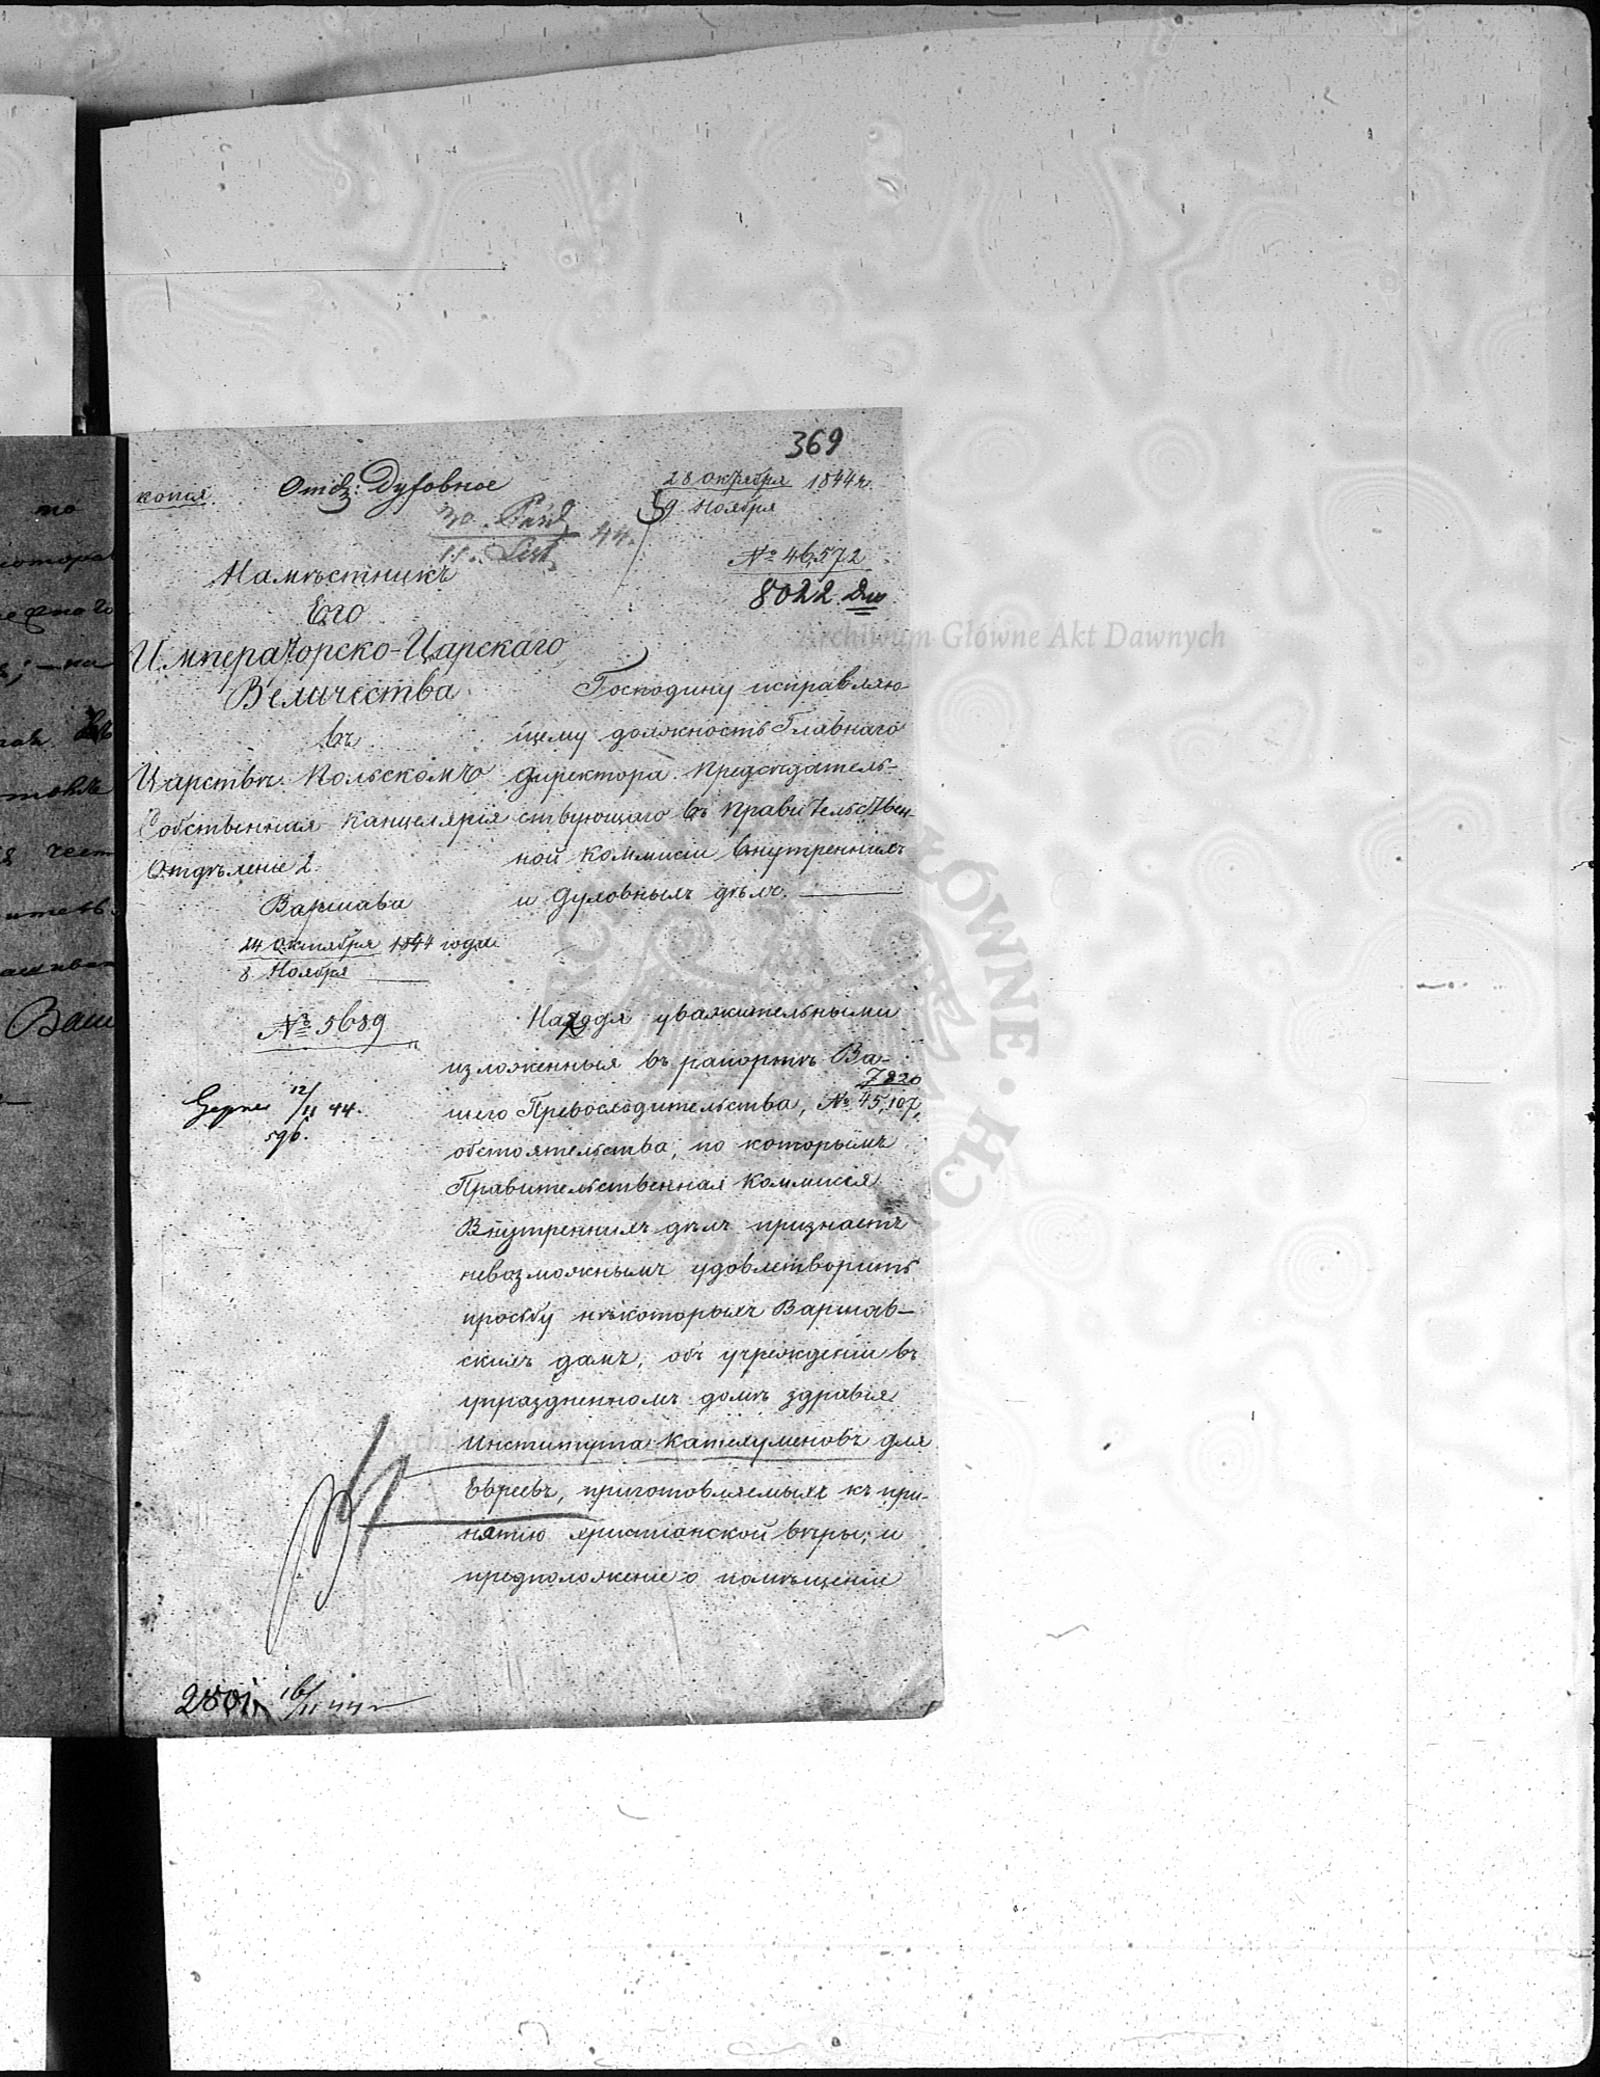 369
копія.
Отд: Духовное
28 Октября 1844 г.
9 Ноября
30. Paźd.
11. List. 44.
№ 46,572
8022
Намѣстникъ
Его
Императорско-Царскаго
Величества
въ
Царствѣ Польскомъ
Собственная Канцелярія
Отдѣленіе 2.
Варшава
24 Октября 1844 года
8 Ноября
№ 5689
12/11 44.
596.
Господину исправляю-
щему должность Главнаго
Директора Предсѣдатель-
ствующаго въ Правительствен-
ной Коммисіи Внутреннихъ
и Духовныхъ дѣлъ.
Находя уважительными
изложенныя въ рапортѣ Ва-
7820
шего Превосходительства, № 45,107,
обстоятельства, по которымъ
Правительственная Коммисія
Внутреннихъ дѣлъ признаетъ
невозможнымъ удовлетворить
просьбу нѣкоторыхъ Варшав-
скихъ дамъ, объ учрежденіи въ
упраздненномъ домѣ здравія
Института Катехуменовъ для
Евреевъ, приготовляемыхъ къ при-
нятію христіанской вѣры; и
предположеніе о помѣщеніи
16/11 44
Archiwum Główne Akt Dawnych